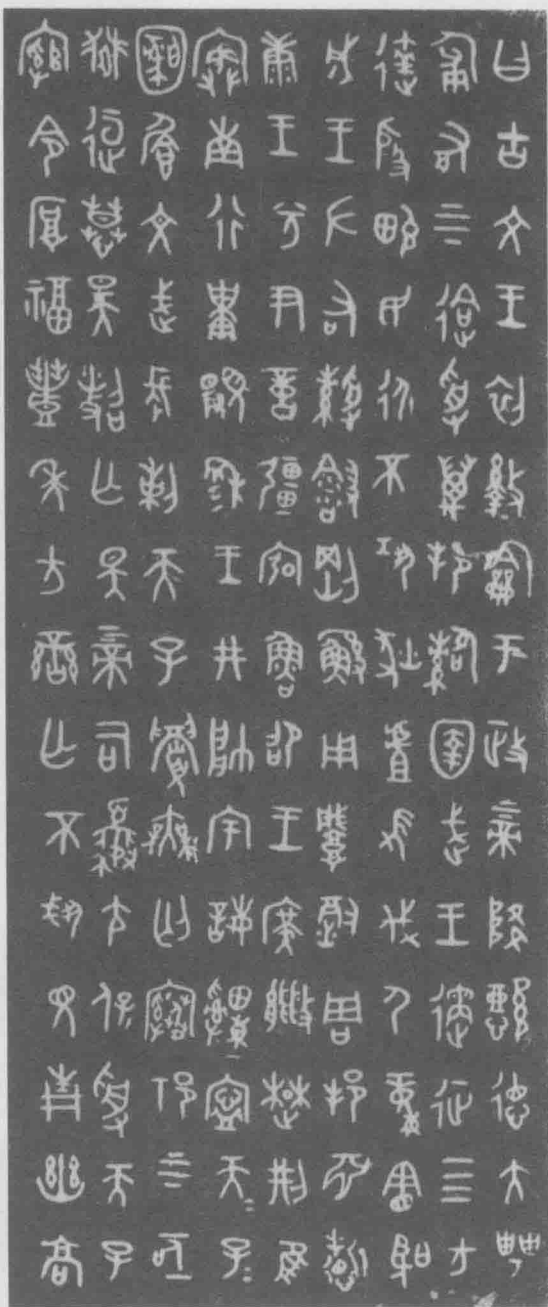 曰古文王初盭龢于政上帝降懿德大甹
匍有上下迨受萬邦䋣圉武王遹征四方
達殷畯民永不巩狄虘長伐尸童憲聖
成王左右綬會剛鯀用肇徹周邦淵哲
康王兮尹億疆宖魯卲王廣笞楚荊隹
寏南行祗顯穆王井帥宇誨申寧天=子=
圝𠪚文武長剌天子眉無匄褰祁上下亟
熙桓慕昊照亡斁上帝司夒尪保受天子
綰令厚福豐年方蠻亡不見青幽高